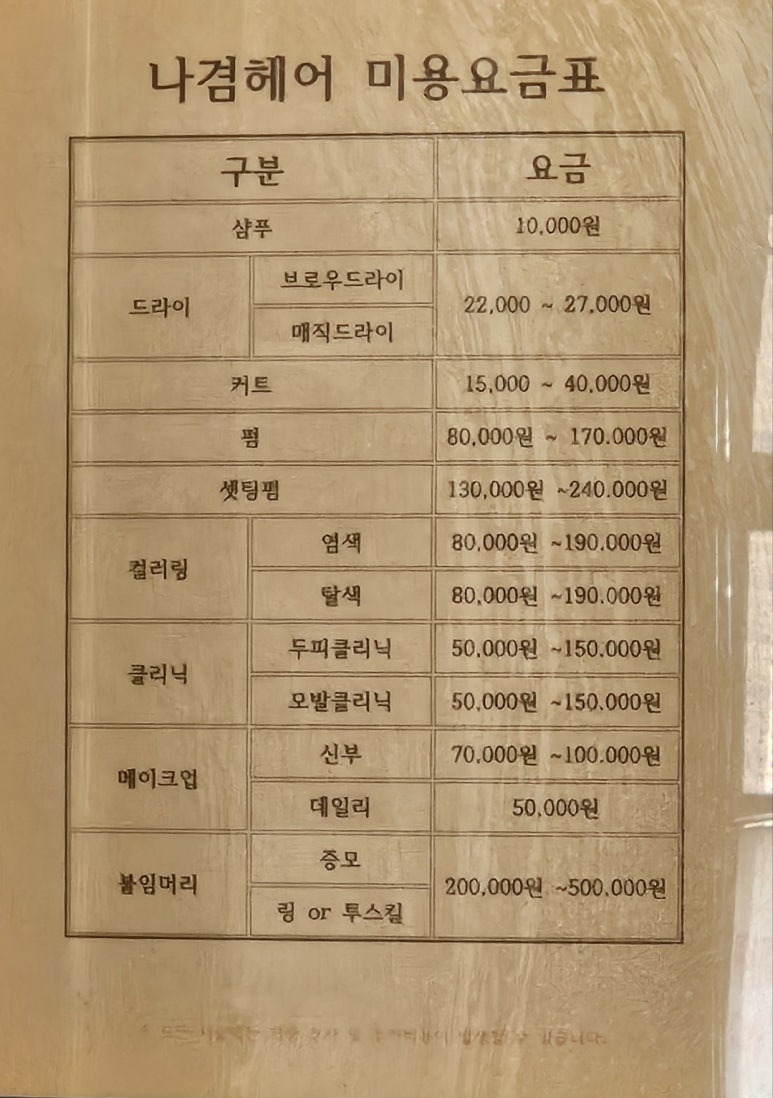 나겸헤어 미용요금표
구분 요금
샴푸 10,000원
드라이 브로우드라이 22,000 ~ 27,000원
매직드라이
커트 15,000 ~ 40,000원
펌 80,000원 ~ 170.000원
셋팅펌 130,000원 ~240.000원
컬러링 염색 80,000원 ~190.000원
탈색 80,000원 ~190.000원
클리닉 두피클리닉 50,000원 ~150.000원
모발클리닉 50,000원 ~150.000원
메이크업 신부 70,000원 ~100.000원
데일리 50,000원
붙임머리 증모 200,000원 ~500,000원
링 or 투스킬